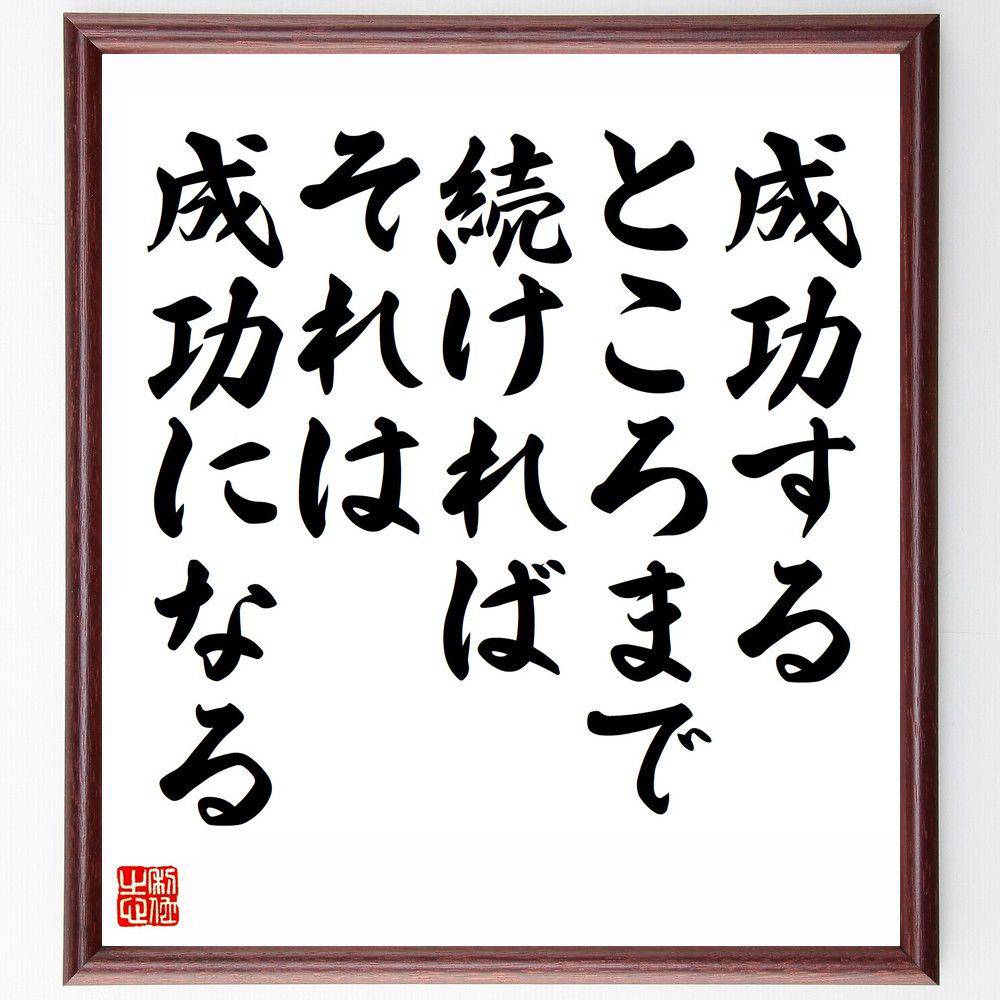 成功する
ところまで
続ければ
それは
成功になる